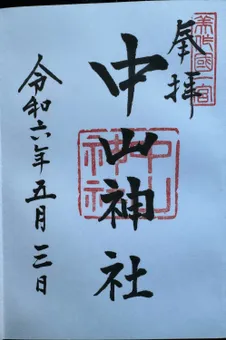 奉拝
美作國一宮
中山神社
中山神社
令和六年五月三日